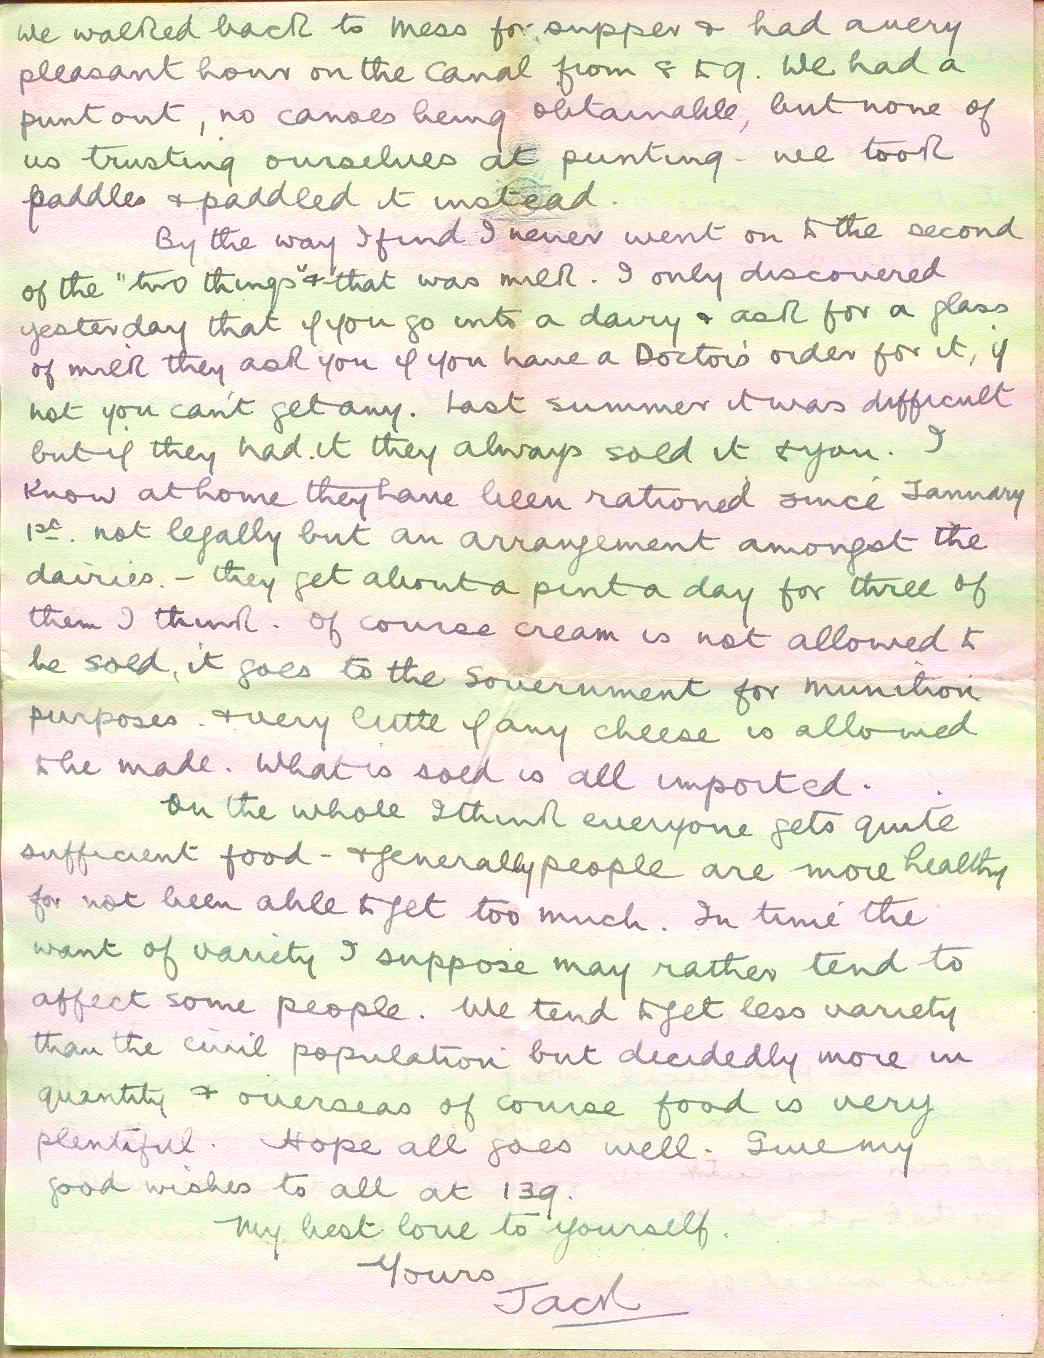 We walked back to Mess for supper & had a very
pleasant hour on the Canal from 8 to 9. We had a
punt out, no canoes being obtainable, but none of
us trusting ourselves at punting - we took
paddles & paddled it instead.
By the way I find I never went on to the second
of the "two things" & that was milk. I only discovered
yesterday that if you go into a dairy & ask for a glass
of milk they ask you if you have a Doctor's order for it, if
not you can't get any. Last summer it was difficult
but if they had it they always sold it to you. I
know at home they have been rationed since January
1st. not legally but an arrangement amongst the
dairies. - they get about a pint a day for three of
them I think. Of course cream is not allowed to
be sold, it goes to the Government for munition
purposes. & very little if any cheese is allowed
to be made. What is sold is all imported.
On the whole I think everyone gets quite
sufficient food - & generally people are more healthy
for not been able to get too much. In time the
want of variety I suppose may rather tend to
affect some people. We tend to get less variety
than the civil population but decidedly more in
quantity & overseas of course food is very
plentiful. Hope all goes well. Give my
good wishes to all at 139.
My best love to yourself.
Yours
Jack